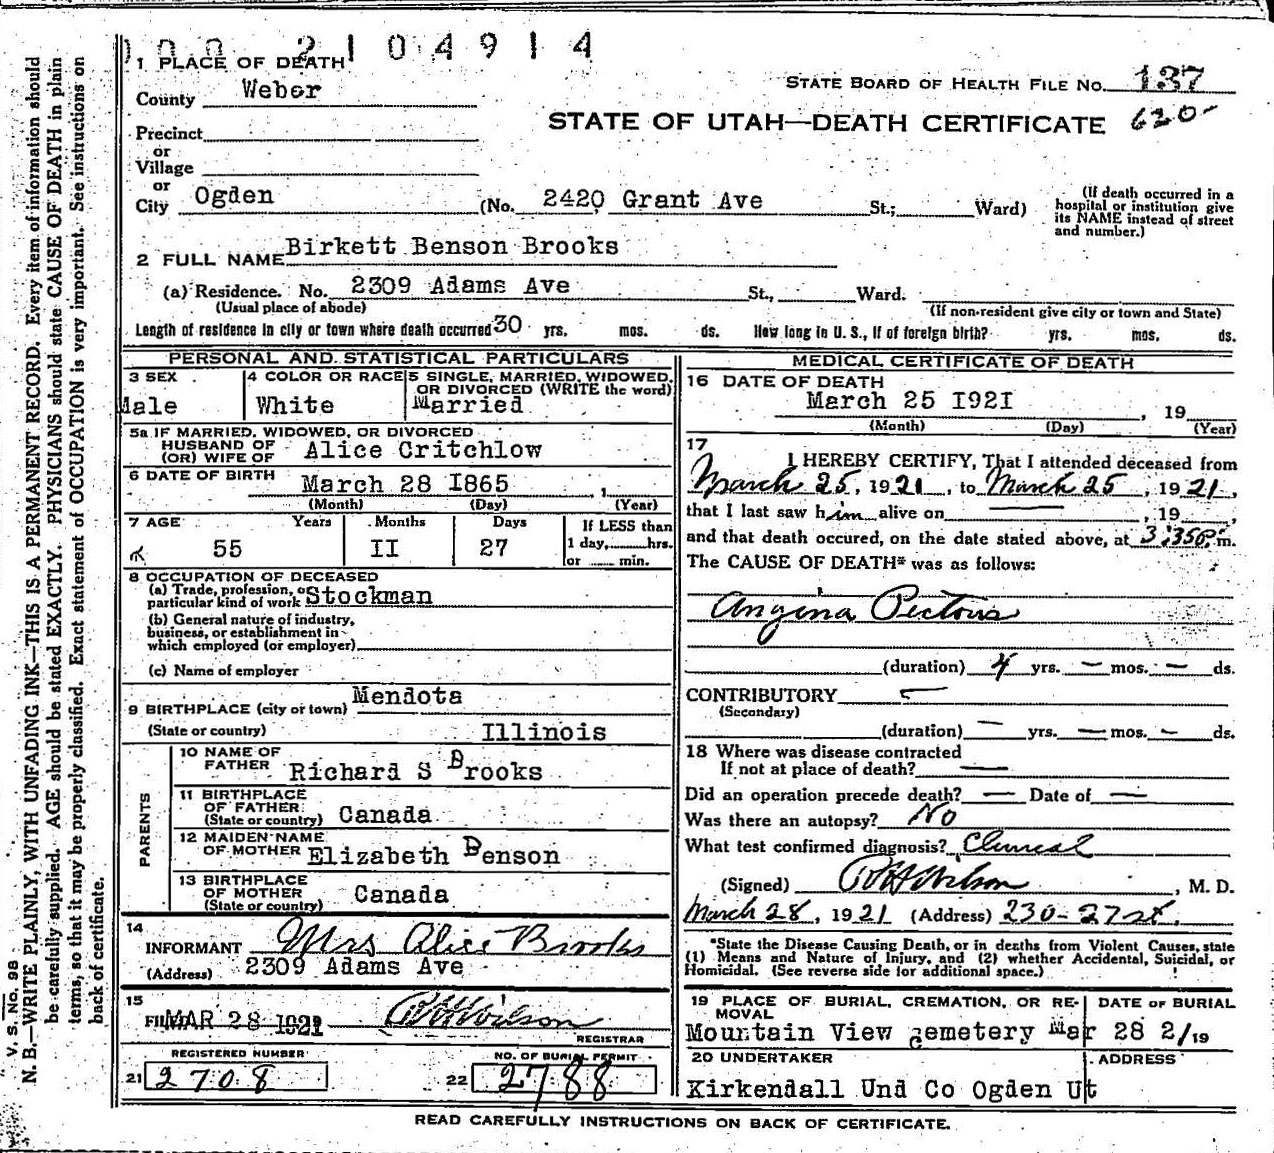 2104914
1 PLACE OF DEATH
County Weber
STATE BOARD OF HEALTH FILE No. 137
STATE OF UTAH—DEATH CERTIFICATE 620-
Precinct
or
Village
or
City Ogden (No. 2420 Grant Ave St.; Ward)
(If death occurred in a hospital or institution give its NAME instead of street and number.)
2 FULL NAME Birkett Benson Brooks
(a) Residence. No. 2309 Adams Ave St., Ward.
(Usual place of abode) (If non-resident give city or town and State)
Length of residence in city or town where death occurred 30 yrs. mos. ds. How long in U. S., if of foreign birth? yrs. mos. ds.
PERSONAL AND STATISTICAL PARTICULARS
3 SEX 4 COLOR OR RACE 5 SINGLE, MARRIED, WIDOWED, OR DIVORCED (WRITE the word)
Male White Married
5a IF MARRIED, WIDOWED, OR DIVORCED
HUSBAND OF
(OR) WIFE OF Alice Critchlow
6 DATE OF BIRTH March 28 I865
(Month) (Day) (Year)
7 AGE Years Months Days If LESS than
55 II 27 1 day, hrs.
or min.
8 OCCUPATION OF DECEASED
(a) Trade, profession, or
particular kind of work Stockman
(b) General nature of industry,
business, or establishment in
which employed (or employer)
(c) Name of employer
9 BIRTHPLACE (city or town) Mendota
(State or country) Illinois
PARENTS
10 NAME OF
FATHER Richard S Brooks
11 BIRTHPLACE
OF FATHER
(State or country) Canada
12 MAIDEN NAME
OF MOTHER Elizabeth Benson
13 BIRTHPLACE
OF MOTHER
(State or country) Canada
14
INFORMANT Mrs Alice Brooks
(Address) 2309 Adams Ave
15
FILED MAR 28 1921 R H Wilson
REGISTRAR
REGISTERED NUMBER NO. OF BURIAL PERMIT
21 2708 22 2788
MEDICAL CERTIFICATE OF DEATH
16 DATE OF DEATH
March 25 I92I , 19
(Month) (Day) (Year)
17
I HEREBY CERTIFY, That I attended deceased from
March 25, 1921, to March 25, 1921,
that I last saw him alive on — , 19 ,
and that death occured, on the date stated above, at 3:35P.m.
The CAUSE OF DEATH* was as follows:
Angina Pectoris
(duration) 4 yrs. — mos. — ds.
CONTRIBUTORY
(Secondary)
(duration) — yrs. — mos. — ds.
18 Where was disease contracted
If not at place of death? —
Did an operation precede death? — Date of —
Was there an autopsy? No
What test confirmed diagnosis? Clinical
(Signed) R H Wilson, M. D.
March 28, 1921 (Address) 230-27 st.
*State the Disease Causing Death, or in deaths from Violent Causes, state
(1) Means and Nature of Injury, and (2) whether Accidental, Suicidal, or
Homicidal. (See reverse side for additional space.)
19 PLACE OF BURIAL, CREMATION, OR RE- DATE OF BURIAL
MOVAL
Mountain View cemetery Mar 28 2/19
20 UNDERTAKER ADDRESS
Kirkendall Und Co Ogden Ut
READ CAREFULLY INSTRUCTIONS ON BACK OF CERTIFICATE.
V. S. No. 88
N. B.—WRITE PLAINLY, WITH UNFADING INK—THIS IS A PERMANENT RECORD. Every item of information should
be carefully supplied. AGE should be stated EXACTLY. PHYSICIANS should state CAUSE OF DEATH in plain
terms, so that it may be properly classified. Exact statement of OCCUPATION is very important. See instructions on
back of certificate.